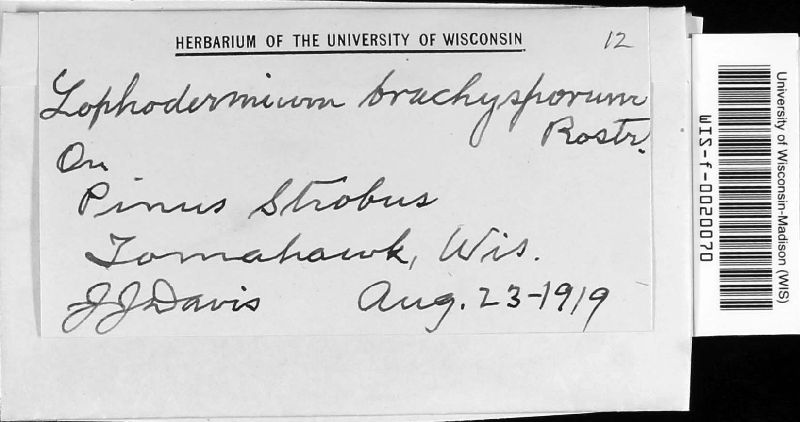 HERBARIUM OF THE UNIVERSITY OF WISCONSIN 12
Lophodermium brachysporum
Rostr.
On
Pinus Strobus
Tomahawk, Wis.
JJ Davis Aug. 23-1919
University of Wisconsin-Madison (WIS)
WIS-f-0020070